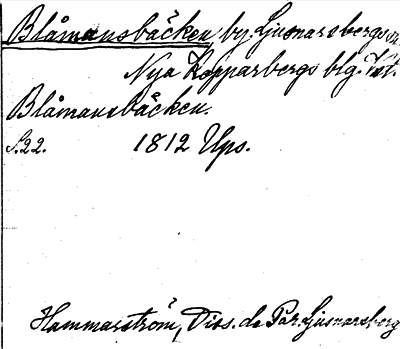 Blåmansbäcken, by. Ljusnarsbergs sn.
Nya Kopparbergs blg. Vst.
Blåmansbäcken.
S.22. 1812 Ups.
Hammarström, Diss. de Par. Ljusnarsberg